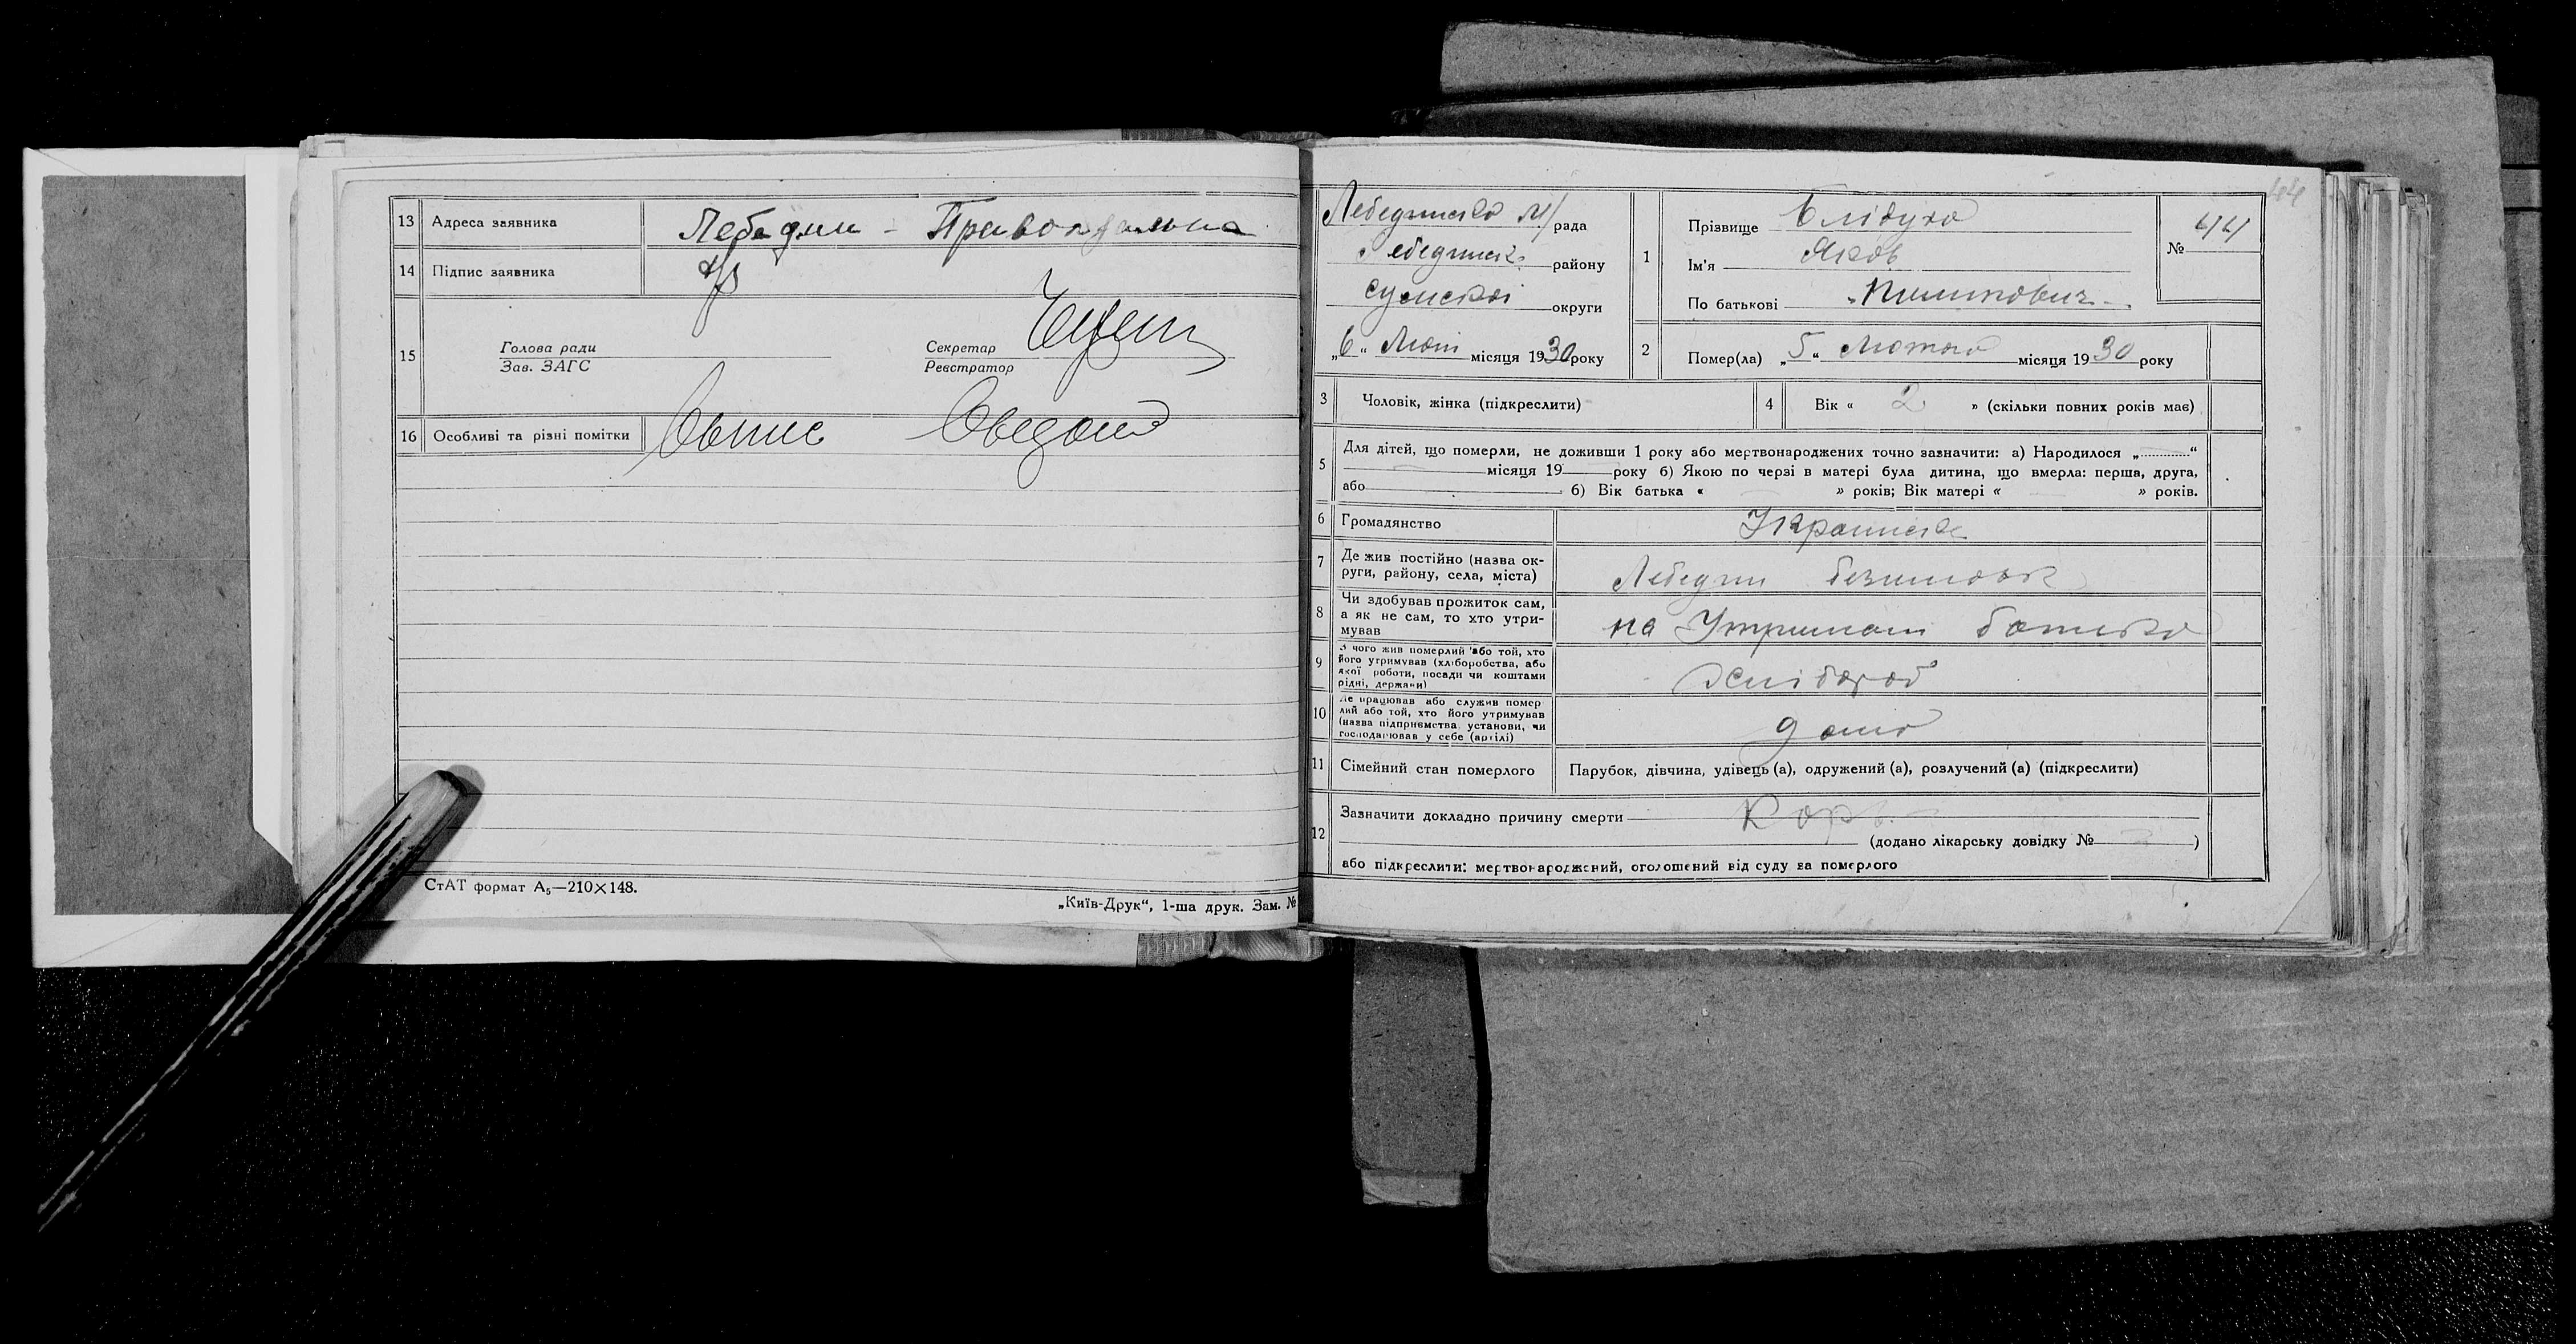 13 Адреса заявника Лебедин - Правокзальна
14 Підпис заявника
15 Голова ради
Зав. ЗАГС
Секретар
Реєстратор
16 Особливі та різні помітки
СтАТ формат А₅—210×148.
„Київ-Друк“, 1-ша друк. Зам. №
44
Лебединська М/рада
Лебединськ. району
Сумської округи
„6“ Лют місяця 1930 року
1 Прізвище Блідуха
Ім'я Яков
По батькові Пилипович
№ 44
2 Помер(ла) „5“ Лютого місяця 1930 року
3 Чоловік, жінка (підкреслити)
4 Вік « 2 » (скільки повних років має)
5 Для дітей, що померли, не доживши 1 року або мертвонароджених точно зазначити: а) Народилося „ “
місяця 19 року б) Якою по черзі в матері була дитина, що вмерла: перша, друга,
або б) Вік батька « » років; Вік матері « » років.
6 Громадянство Українське
7 Де жив постійно (назва ок-
руги, району, села, міста) Лебедин
8 Чи здобував прожиток сам,
а як не сам, то хто утри-
мував на Утриман батька
9 З чого жив померлий або той, хто
його утримував (хліборобства, або
якої роботи, посади чи коштами
рідні, держави) Хлібороб
10 Де працював або служив помер
лий або той, хто його утримував
(назва підприємства установи, чи
господарював у себе (артілі) дома
11 Сімейний стан померлого Парубок, дівчина, удівець (а), одружений (а), розлучений (а) (підкреслити)
12 Зазначити докладно причину смерти Кор
(додано лікарську довідку № )
або підкреслити: мертвонароджений, оголошений від суду за померлого